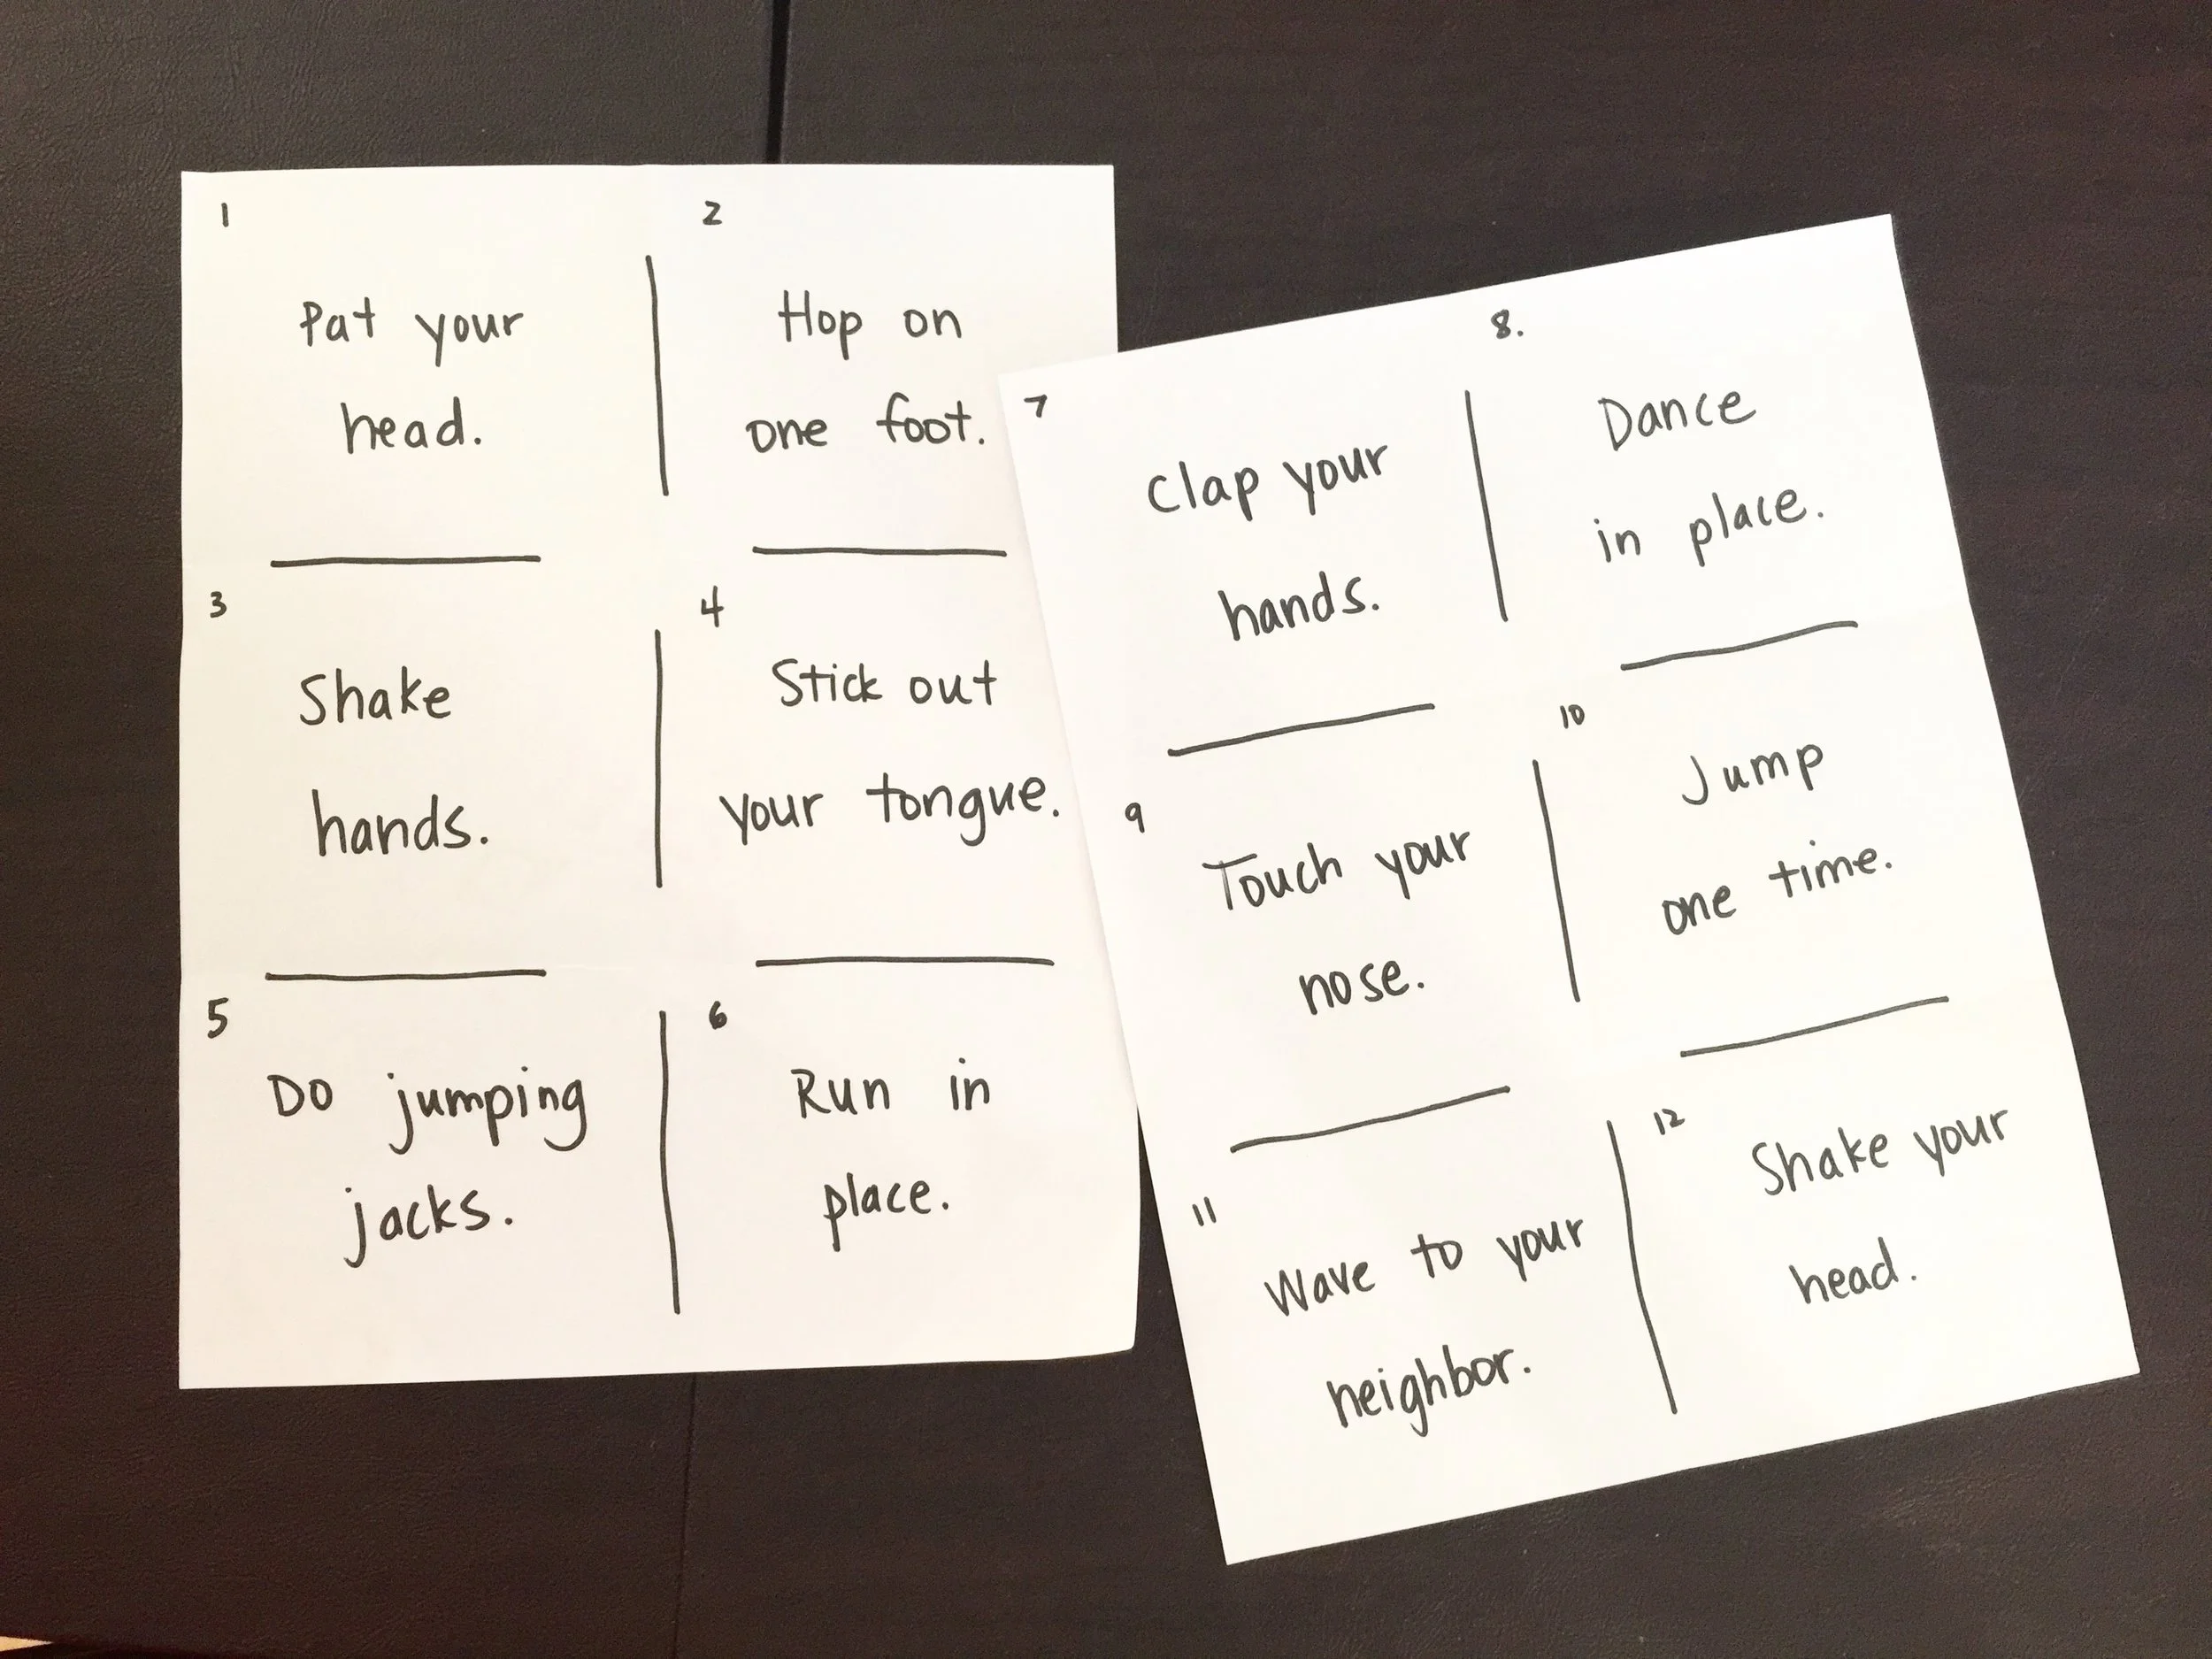 1
Pat your
head.
2
Hop on
one foot.
3
Shake
hands.
4
Stick out
your tongue.
5
Do jumping
jacks.
6
Run in
place.
7
Clap your
hands.
8.
Dance
in place.
9
Touch your
nose.
10
Jump
one time.
11
Wave to your
neighbor.
12
Shake your
head.